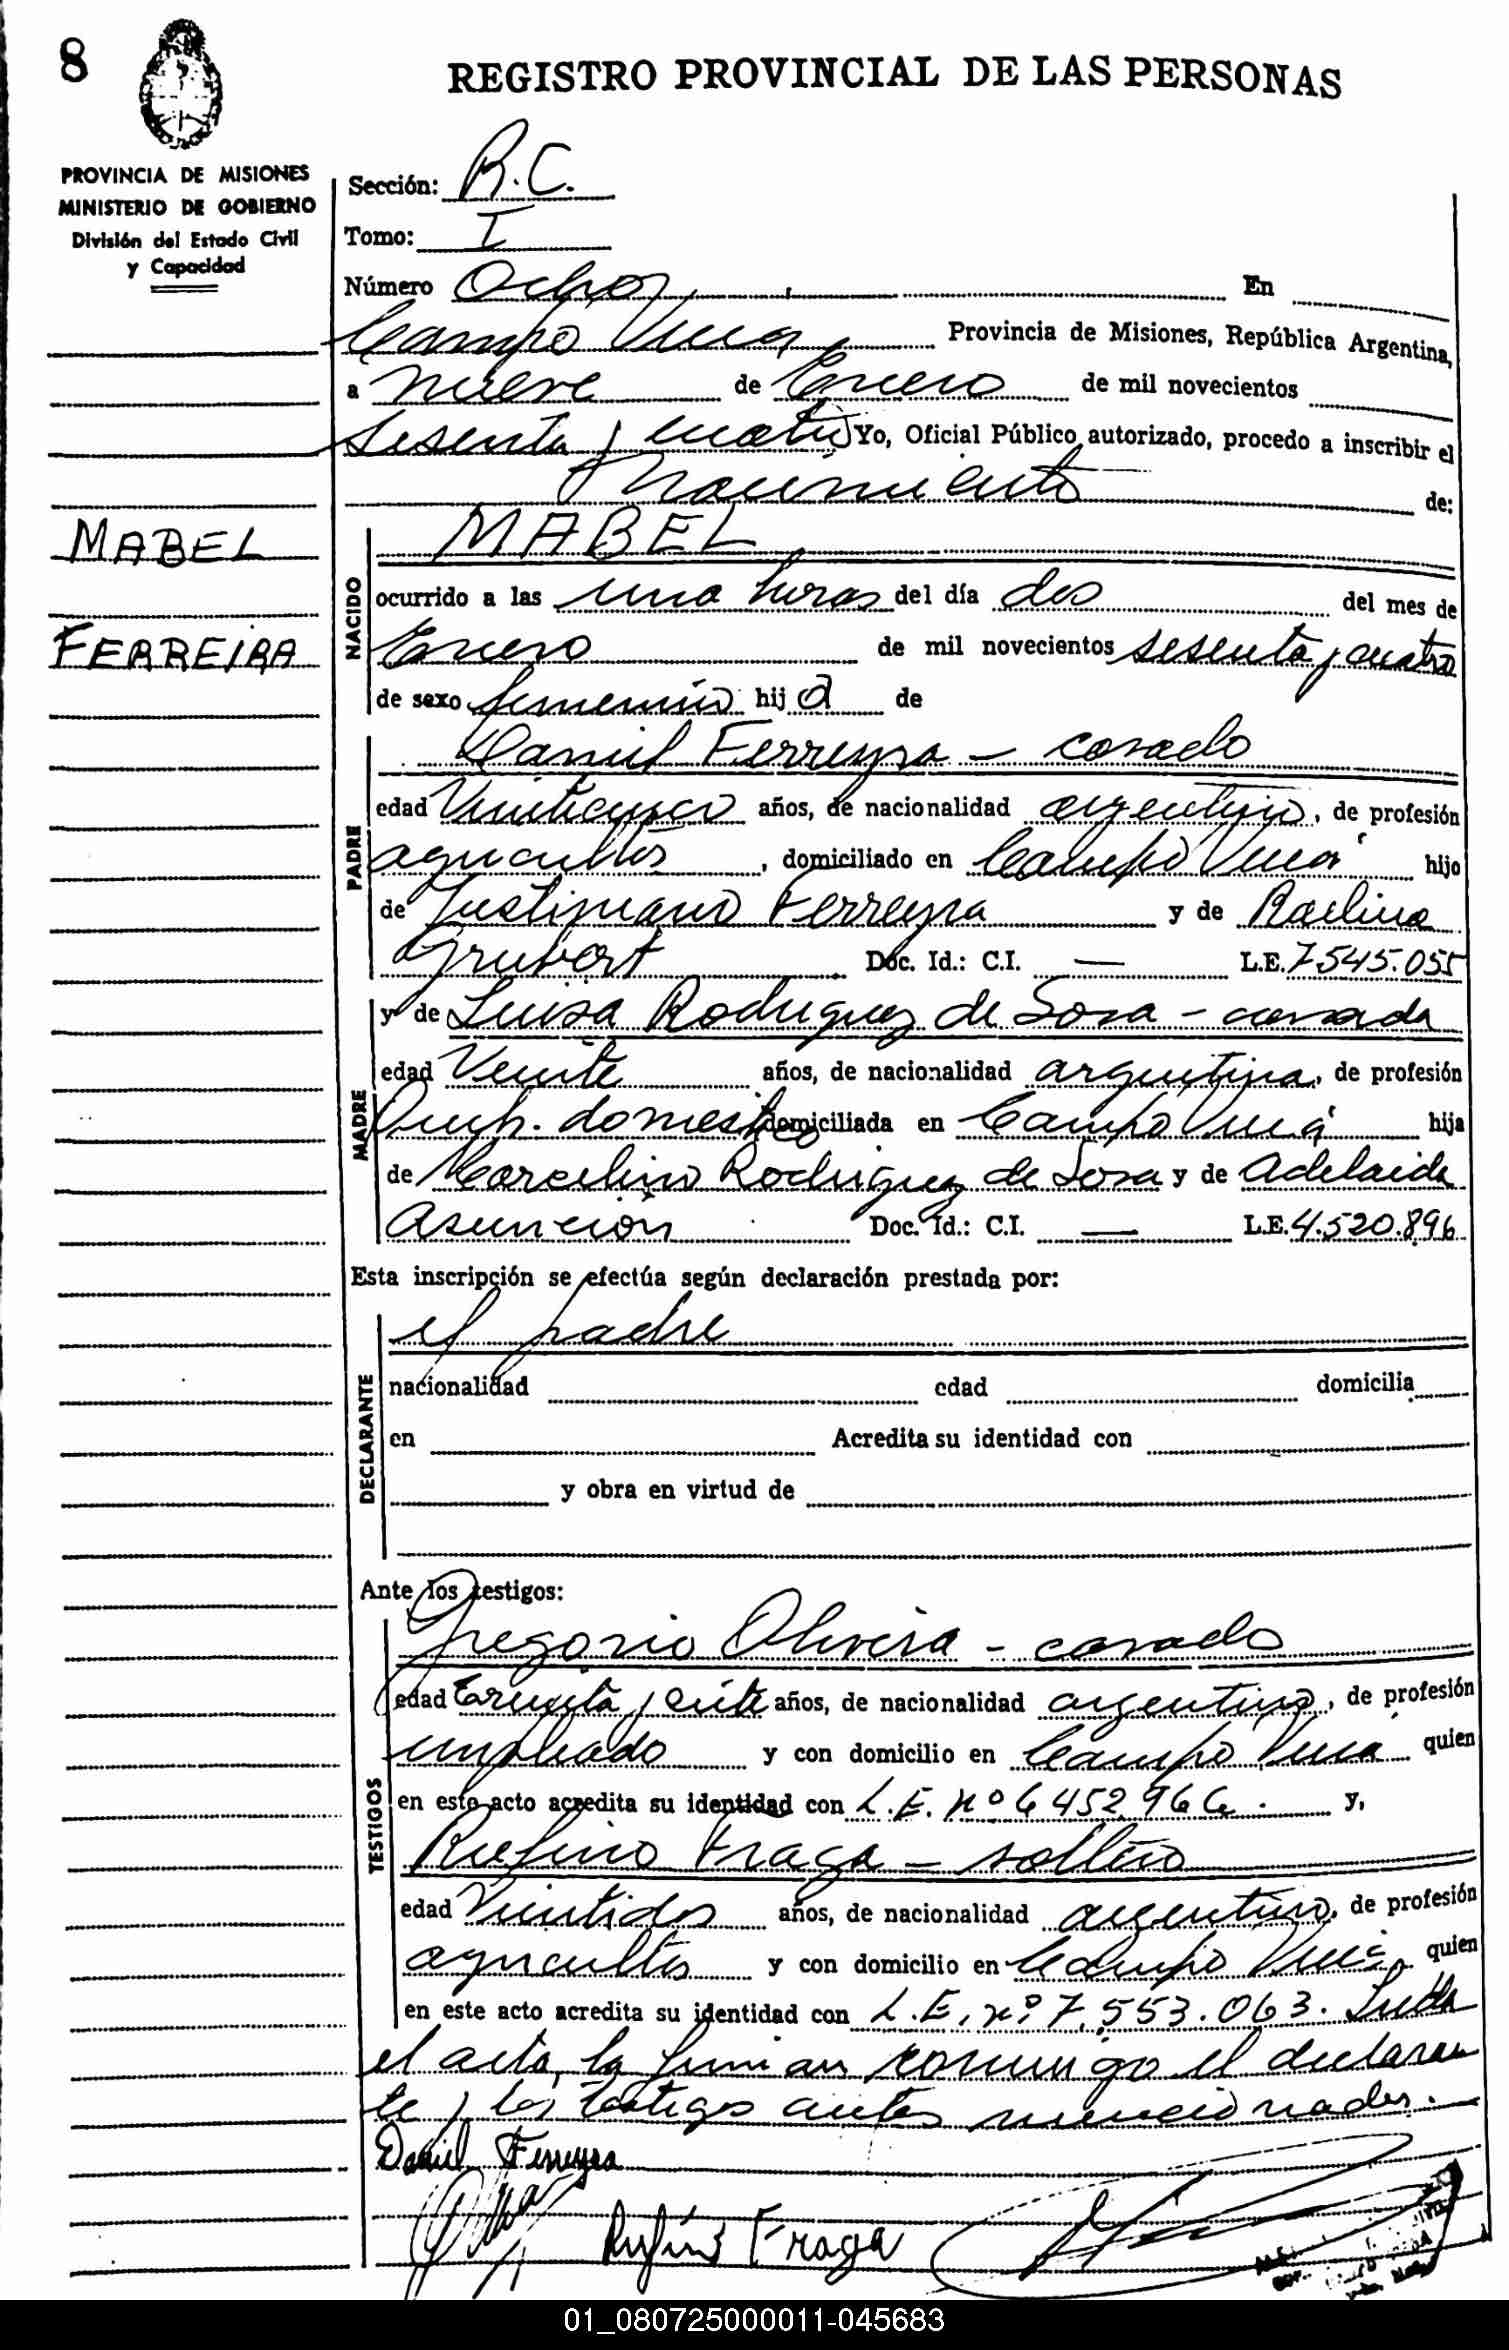 8
REGISTRO PROVINCIAL DE LAS PERSONAS
PROVINCIA DE MISIONES
MINISTERIO DE GOBIERNO
División del Estado Civil
y Capacidad
Sección: R.C.
Tomo: I
Número Ocho En
Campo Viera Provincia de Misiones, República Argentina,
a nueve de Enero de mil novecientos
sesenta y cuatro Yo, Oficial Público autorizado, procedo a inscribir el
Nacimiento de:
MABEL
FERREIRA
NACIDO
MABEL
ocurrido a las una horas del día dos del mes de
Enero de mil novecientos sesenta y cuatro
de sexo femenino hij a de
PADRE
Daniel Ferreyra - casado
edad Veinticinco años, de nacionalidad argentino, de profesión
agricultor, domiciliado en Campo Viera hijo
de Justiniano Ferreyra y de
Doc. Id.: C.I. — L.E. 7545.055
MADRE
y de Luisa Rodriguez de Sosa - casada
edad Veinte años, de nacionalidad argentina, de profesión
domestico domiciliada en Campo Viera hija
de Marcelino Rodriguez de Sosa y de Adelaida
Asunción Doc. Id.: C.I. — L.E. 4.520.896
Esta inscripción se efectúa según declaración prestada por:
DECLARANTE
el padre
nacionalidad edad domicilia
en Acredita su identidad con
y obra en virtud de
Ante los testigos:
TESTIGOS
Gregorio Olivera - casado
edad Treinta y siete años, de nacionalidad argentino, de profesión
empleado y con domicilio en Campo Viera quien
en este acto acredita su identidad con L.E. nº 6452966. y,
Rufino Fraga - soltero
edad Veintidos años, de nacionalidad argentino, de profesión
agricultor y con domicilio en Campo Viera quien
en este acto acredita su identidad con L.E. nº 7.553.063. Leida
el acta, la firman conmigo el declaran
te y los testigos antes mencionados.
Daniel Ferreyra
Rufino Fraga
01_080725000011-045683